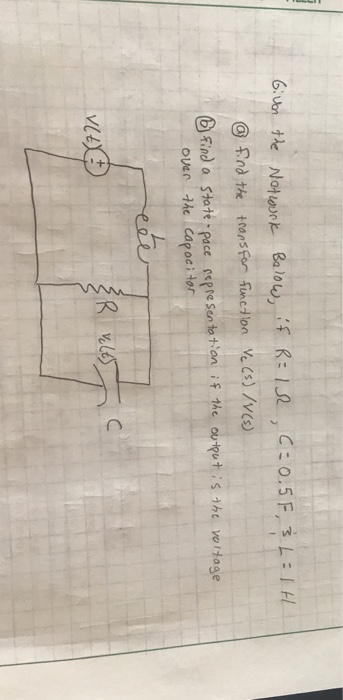 Given the Network Below, if R = 1Ω, C = 0.5F, & L = 1H
ⓐ find the transfer function Vc(s) / V(s)
ⓑ find a state-pace representation if the output is the voltage
over the capacitor
V(t)
+
-
R
Vc(t)
C